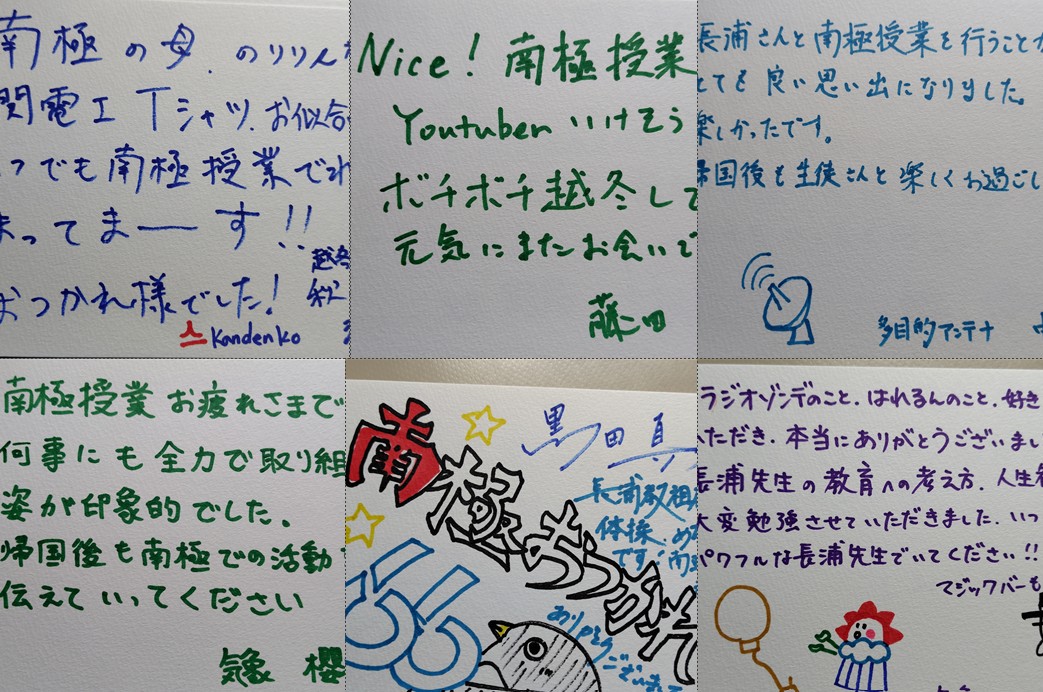 南極の母、のりりん
関電工Tシャツ、お似合
つでも南極授業でれ
まってまーす!!
越冬
おつかれ様でした!
Kandenko
Nice! 南極授業
Youtuber いけそう
ボチボチ越冬して
元気にまたお会いで
藤田
長浦さんと南極授業を行うことが
とても良い思い出になりました。
楽しかったです。
帰国後も生徒さんと楽しくお過ごし
多目的アンテナ
南極授業お疲れさまで
何事にも全力で取り組
姿が印象的でした。
帰国後も南極での活動
伝えていってください
気象 櫻
黒田真
南極
長浦
体操、め
です!南
ありがとう
ございま
ラジオゾンデのこと、はれるんのこと、好き
いただき、本当にありがとうございまし
長浦先生の教育への考え方、人生
大変勉強させていただきました。いっ
パワフルな長浦先生でいてください!!
マジックバーも